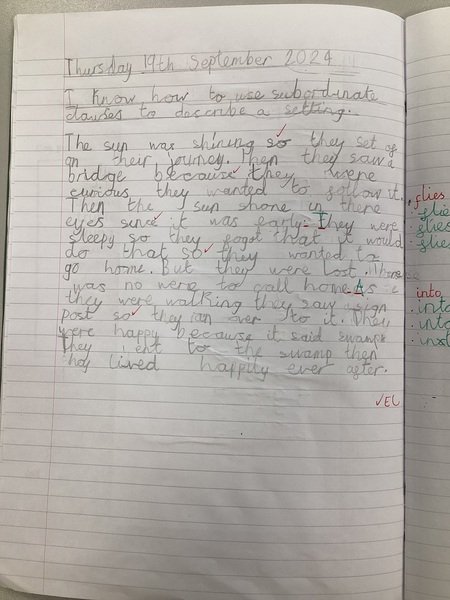 Thursday 19th September 2024
I know how to use subordinate
clauses to describe a setting.
The sun was shining so they set of
on their journey. Then they saw a
bridge because they were
curious they wanted to follow it.
Then the sun shone in there
eyes since it was early. They were
sleepy so they fogot that it would
do that so they wanted to
go home. But they were lost. There
was no were to call home. As
they were walking they saw sign
post so they ran over to it. They
were happy because it said swamp
They went to the swamp then
they lived happily ever after.
✓EL
flies
into